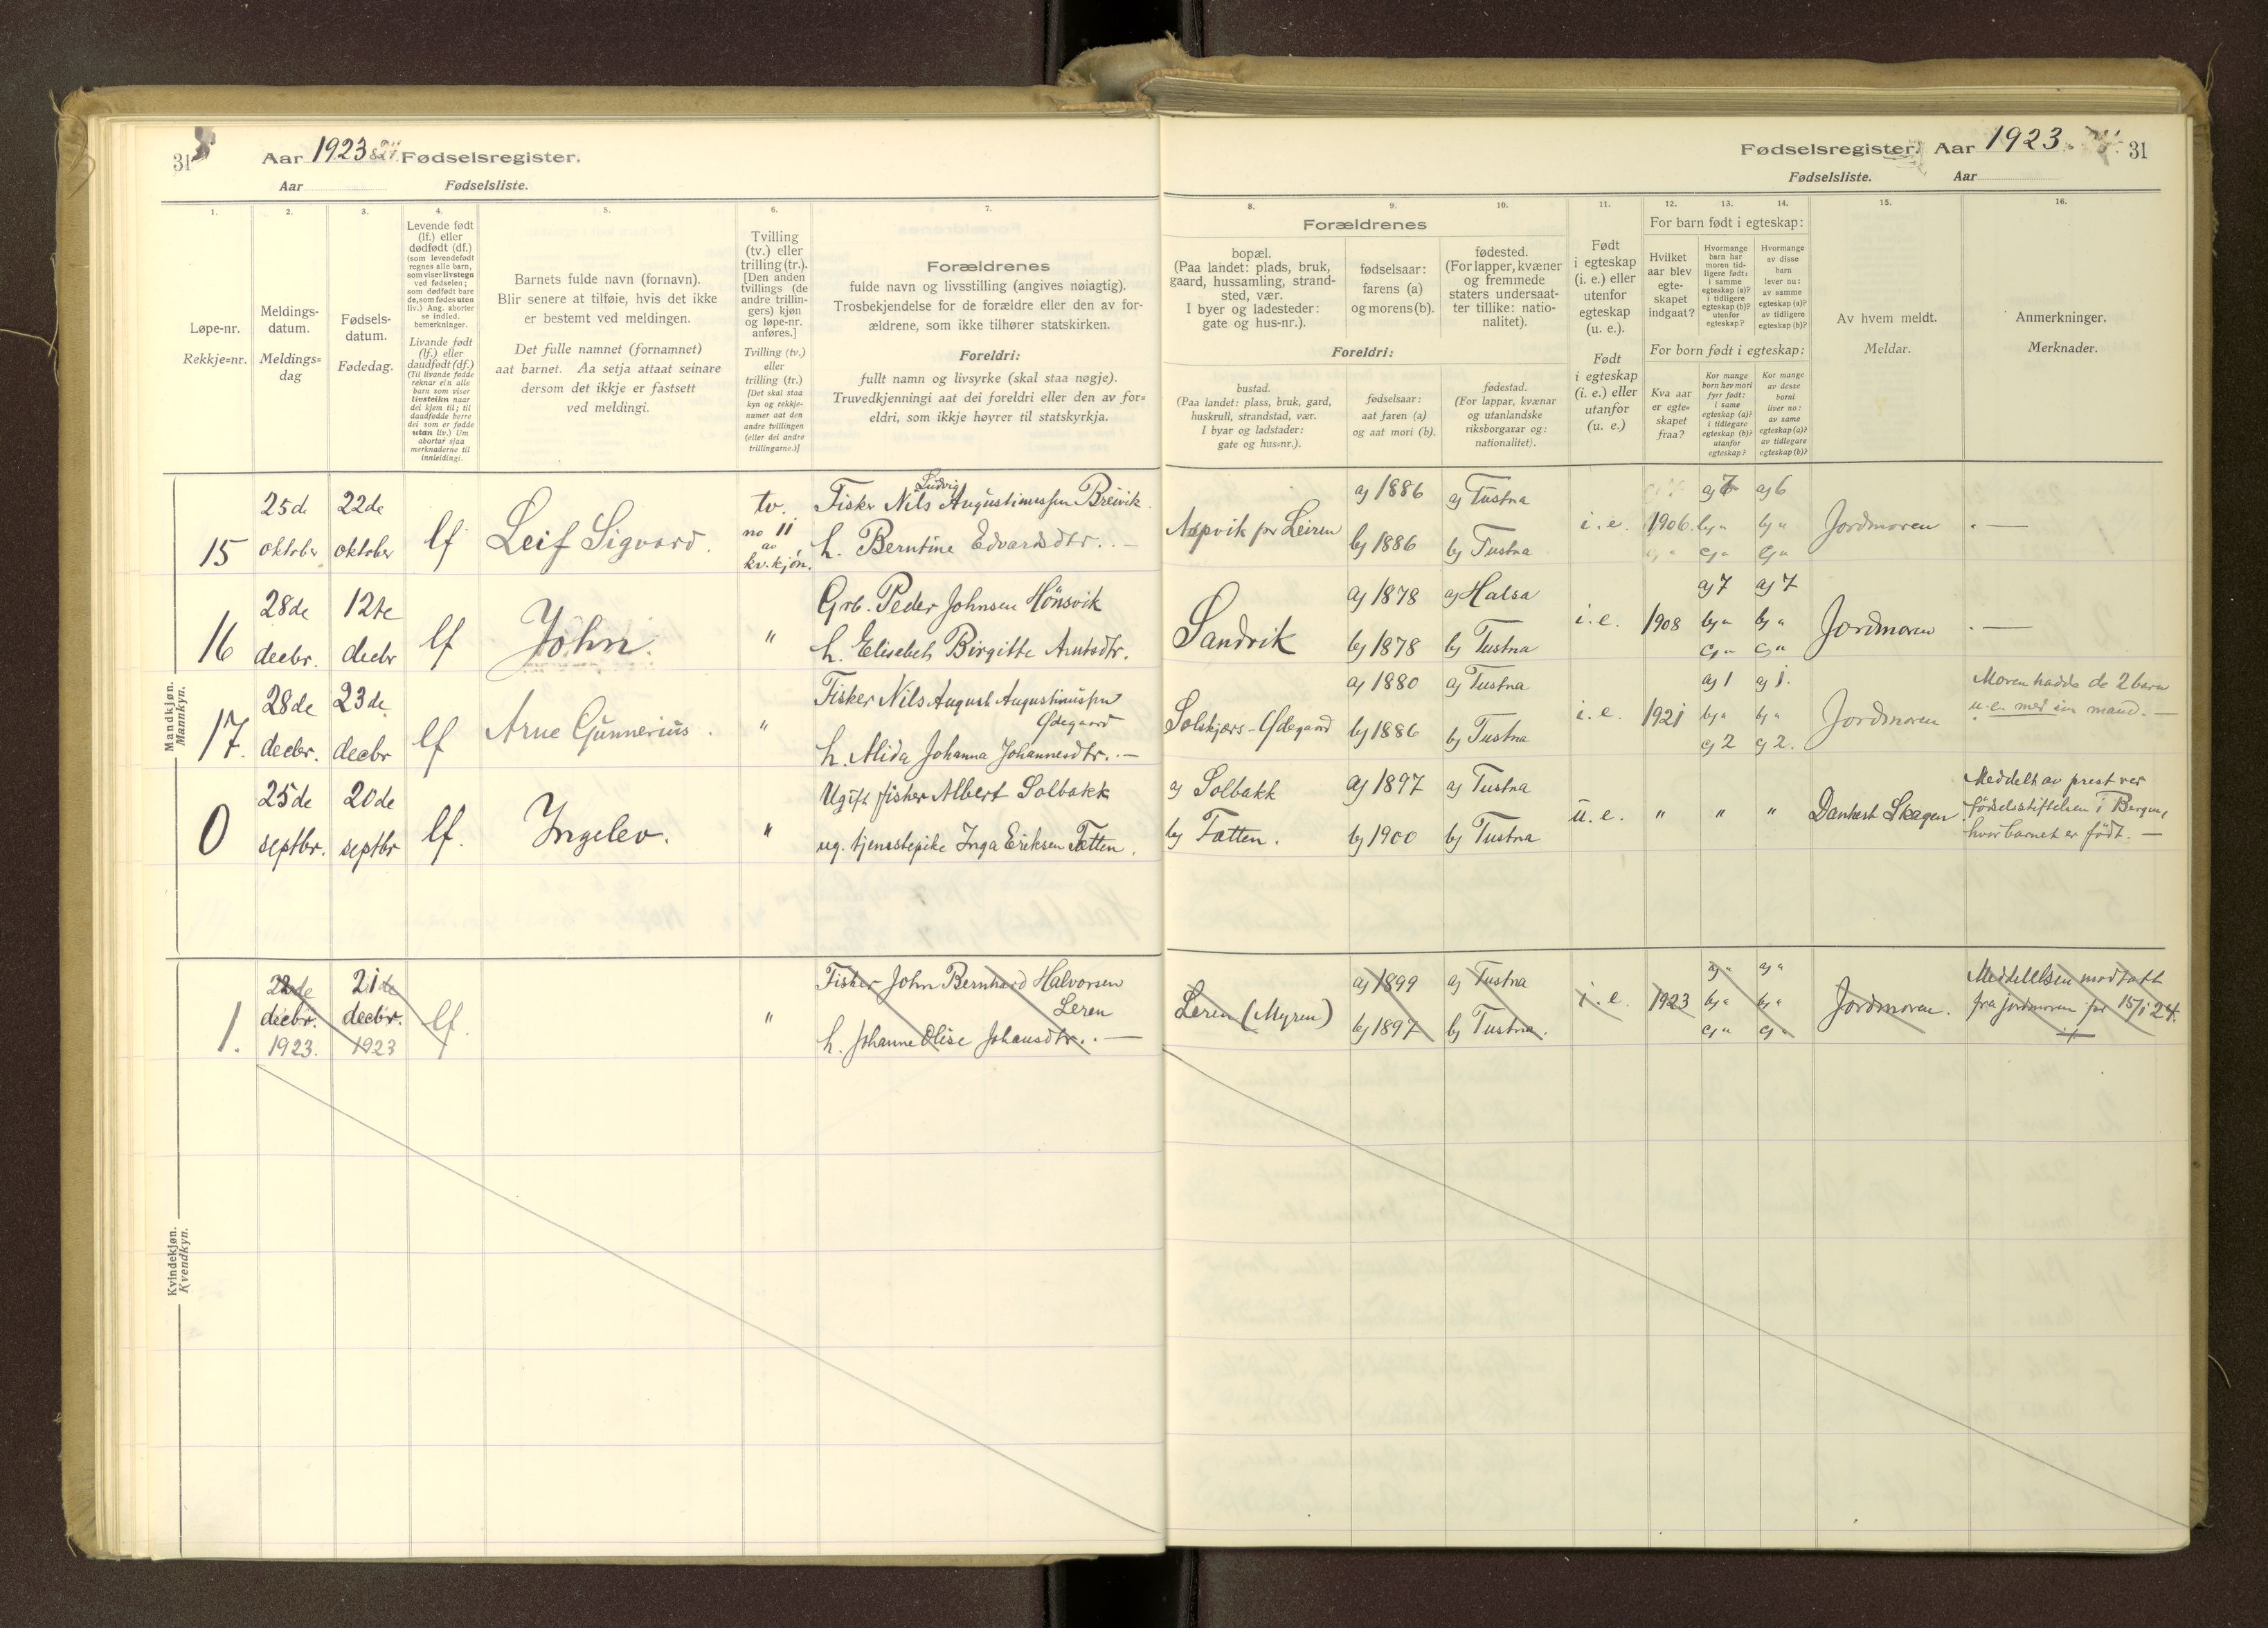 31
Aar 1923 & 24. Fødselsregister.
Aar Fødselsliste.
Fødselsregister. Aar 1923. 31
Fødselsliste. Aar
1.
Løpe-nr.
Rekkje=nr.
2.
Meldings-
datum.
Meldings=
dag
3.
Fødsels-
datum.
Fødedag.
4.
Levende født
(lf.) eller
dødfødt (df.)
(som levendefødt
regnes alle barn,
som viser livstegn
ved fødselen;
som dødfødt bare
de, som fødes uten
liv.) Ang. aborter
se indled.
bemerkninger.
Livande født
(lf.) eller
daudfødt (df.)
(Til livande fødde
reknar ein alle
barn som viser
livsteikn naar
dei kjem til; til
daudfødde berre
dei som er fødde
utan liv.) Um
abortar sjaa
merknaderne til
innleidingi.
5.
Barnets fulde navn (fornavn).
Blir senere at tilføie, hvis det ikke
er bestemt ved meldingen.
Det fulle namnet (fornamnet)
aat barnet. Aa setja attaat seinare
dersom det ikkje er fastsett
ved meldingi.
6.
Tvilling
(tv.) eller
trilling (tr.).
[Den anden
tvillings (de
andre trillin-
gers) kjøn
og løpe-nr.
anføres.]
Tvilling (tv.)
eller
trilling (tr.)
[Det skal staa
kyn og rekkje-
numer aat den
andre tvillingen
(eller dei andre
trillingarne.)]
7.
Forældrenes
fulde navn og livsstilling (angives nøiagtig).
Trosbekjendelse for de forældre eller den av for-
ældrene, som ikke tilhører statskirken.
Foreldri:
fullt namn og livsyrke (skal staa nøgje).
Truvedkjenningi aat dei foreldri eller den av for=
eldri, som ikkje høyrer til statskyrkja.
8. 9. 10.
Forældrenes
bopæl.
(Paa landet: plads, bruk,
gaard, hussamling, strand-
sted, vær.
I byer og ladesteder:
gate og hus-nr.).
fødselsaar:
farens (a)
og morens (b).
fødested.
(For lapper, kvæner
og fremmede
staters undersaat-
ter tillike: natio-
nalitet).
Foreldri:
bustad.
(Paa landet: plass, bruk, gard,
huskrull, strandstad, vær.
I byar og ladstader:
gate og hus=nr.).
fødselsaar:
aat faren (a)
og aat mori (b).
fødestad.
(For lappar, kvænar
og utanlandske
riksborgarar og:
nationalitet).
11.
Født
i egteskap
(i. e.) eller
utenfor
egteskap
(u. e.).
Født
i egteskap
(i. e.) eller
utanfor
(u. e.)
12. 13. 14.
For barn født i egteskap:
Hvilket
aar blev
egte-
skapet
indgaat?
Hvormange
barn har
moren tid-
ligere født:
i samme
egteskap (a)?
i tidligere
egteskap (b)?
utenfor
egteskap?
Hvormange
av disse
barn
lever nu:
av samme
egteskap (a)?
av tidligere
egteskap (b)?
For born født i egteskap:
Kva aar
er egte=
skapet
fraa?
Kor mange
born hev mori
fyrr født:
i same
egteskap (a)?
i tidlegare
egteskap (b)?
utanfor
egteskap?
Kor mange
av desse
borni
liver no:
av same
egteskap (a)?
av tidlegare
egteskap (b)?
15.
Av hvem meldt.
Meldar.
16.
Anmerkninger.
Merknader.
Mandkjøn.
Mannkyn.
15
25de
oktober
22de
oktober
lf
Leif Sigvard.
tv.
no 11
av
kv. kjøn.
Ludvig
Fisker Nils Augustinussen Breivik.
h. Berntine Edvardsdtr. . —
Aspvik for Leiren
a) 1886
b) 1886
a) Tustna
b) Tustna
i. e.
1906.
a) 7
b) "
c) "
a) 6
b) "
c) "
Jordmoren
. —
16
28de
decbr.
12te
decbr
lf
John.
"
Grb. Peder Johnsen Hönsvik
h. Elisabet Birgitte Arntsdtr.
Sandvik
a) 1878
b) 1878
a) Halsa
b) Tustna
i. e.
1908
a) 7
b) "
c) "
a) 7
b) "
c) "
Jordmoren
. —
17.
28de
decbr.
23de
decbr
lf
Arne Gunnerius.
"
Fisker Nils August Augustinussen
Ødegaard
h. Alida Johanna Johannesdtr. . —
Solskjærs-Ødegaard
a) 1880
b) 1886
a) Tustna
b) Tustna
i. e.
1921
a) 1
b) "
c) 2
a) 1.
b) "
c) 2.
Jordmoren
Moren hadde de 2 barn
u. e. med sin mand. —
0
25de
septbr.
20de
septbr
lf.
Ingelev.
"
Ugift fisker Albert Solbakk
ug. tjenestepike Inga Eriksen Tætten.
a) Solbakk
b) Tætten.
a) 1897
b) 1900
a) Tustna
b) Tustna
u. e.
"
"
"
Dankert Skagen.
Meddelt av prest ver
fødselsstiftelsen i Bergen,
hvor barnet er født. —
Kvindekjøn.
Kvendkyn.
1.
22de
decbr.
1923.
21de
decbr.
1923
lf.
"
Fisker John Bernhard Halvorsen
Leren
h. Johanne Olise Johansdtr. . —
Leren (Myren)
a) 1899
b) 1897
a) Tustna
b) Tustna.
i. e.
1923
a) "
b) "
c) "
a) "
b) "
c) "
Jordmoren.
Meddelelsen modtatt
fra jordmoren før 15/1 24.